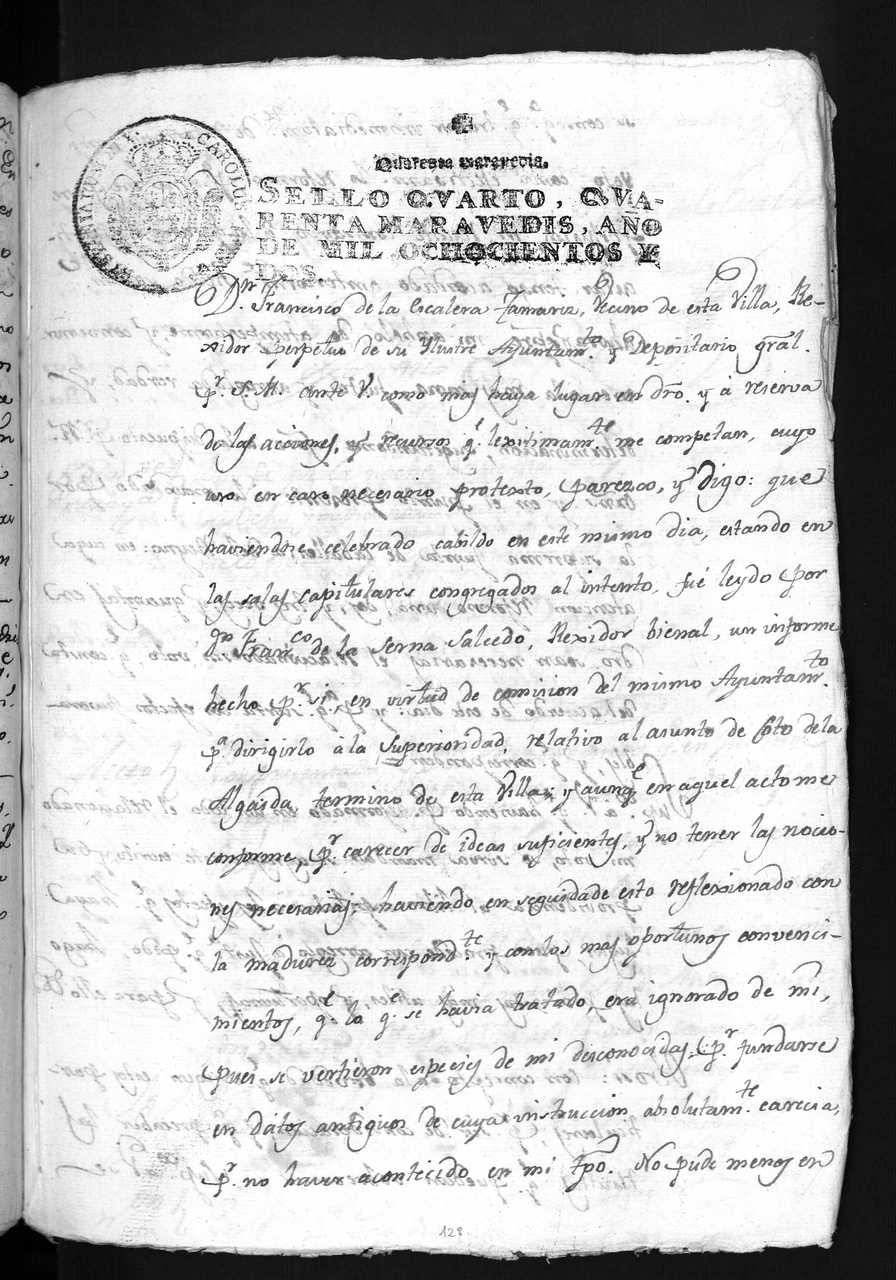 Quarenta maravedis.
SELLO QVARTO, QVA-
RENTA MARAVEDIS, AÑO
DE MIL OCHOCIENTOS Y
DOS.
Dn. Francisco de la Escalera Tamariz, Vecino de esta Villa, Re-
xidor perpetuo de su Ylustre Ayuntamto. y Depositario gral.
pr. S. M. ante V. como mas haya lugar en dro. y a reserva
de las acciones, y recursos qe. lexitimamte. me competan, cuyo
uso en caso necesario protexto, parezco, y Digo: que
haviendose celebrado cabildo en este mismo dia, estando en
las salas capitulares congregados al intento, fué leydo por
dn. Franco. de la Serna Salcedo, Rexidor bienal, un informe
hecho pr. si, en virtud de comision del mismo Ayuntamto.
pa. dirigirlo à la Superioridad, relativo al asunto de Coto de la
Algaida termino de esta Villa; y aunqe. en aquel acto me
conforme, pr. carecer de ideas suficientes, y no tener las nocio-
nes necesarias; haviendo en seguida de esto reflexionado con
la madurez correspondte. y con los mas oportunos convenci-
mientos, qe. lo qe. se havia tratado, era ignorado de mi,
pues se vertieron especies de mi desconocidas, pr. fundarse
en datos antiguos de cuya instruccion absolutamte. carecia,
pr. no haver acontecido en mi tpo. No pude menos en
128
CAROLUS